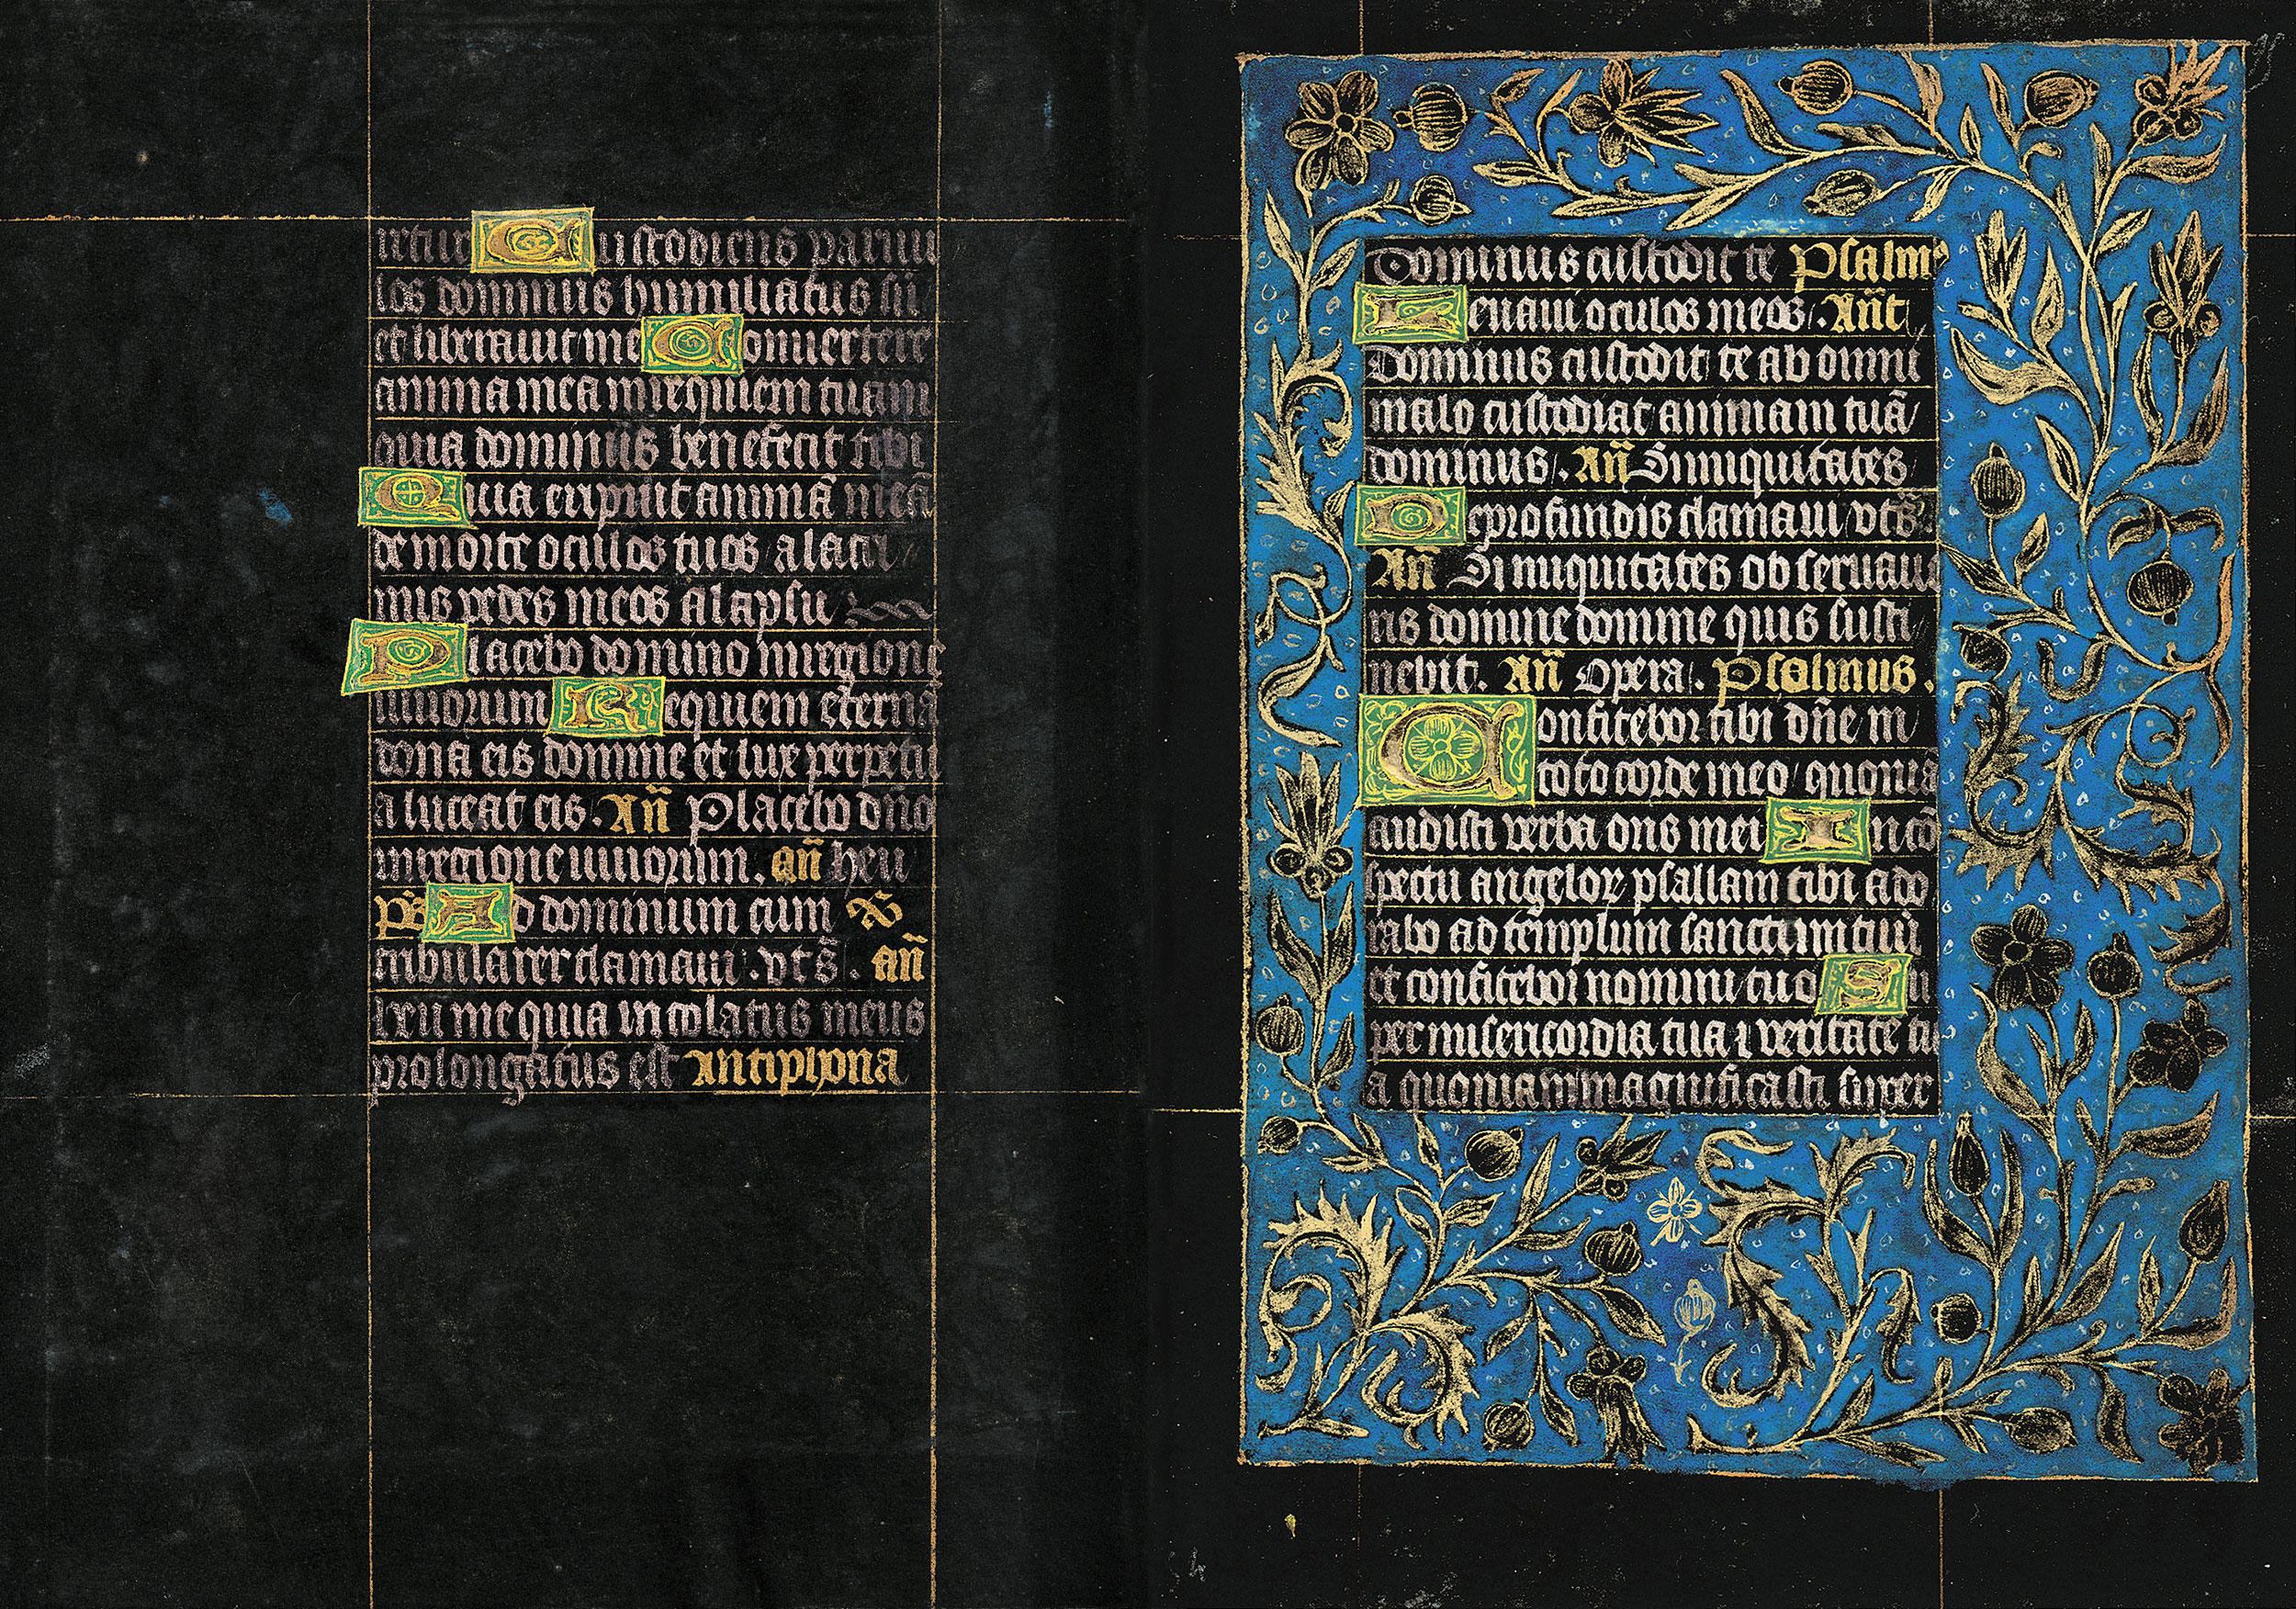 retur Custodiens paruu
los dominus humiliatus sū
et liberauit me Conuertere
anima mea in requiem tuam
quia dominus benefecit tibi
Quia eripuit animā meā
de morte oculos tuos a lacri
mis pedes meos a lapsu
Placebo domino in regione
uiuorum Requiem eternā
dona eis domine et lux perpetu
a luceat eis. An̄ Placebo dn̄o
in regione uiuorum. an̄ heu
ps Ad dominum cum
tribularer clamaui .vts̄. an̄
heu me quia incolatus meus
prolongatus est Antiphona
Dominus custodit te Psalmꝰ
Leuaui oculos meos. An̄t
Dominus custodit te ab omni
malo custodiat animam tuā
dominus. An̄ Si iniquitates
De profundis clamaui vts̄.
An̄ Si iniquitates obseruaue
ris domine domine quis susti
nebit. An̄ Opera. Psalmus.
Confitebor tibi dn̄e in
toto corde meo quoniā
audisti verba oris mei In cō
spectu angeloꝝ psallam tibi ado
rabo ad templum sanctum tuū
et confitebor nomini tuo Su
per misericordia tua ⁊ veritate tu
a quoniam magnificasti super